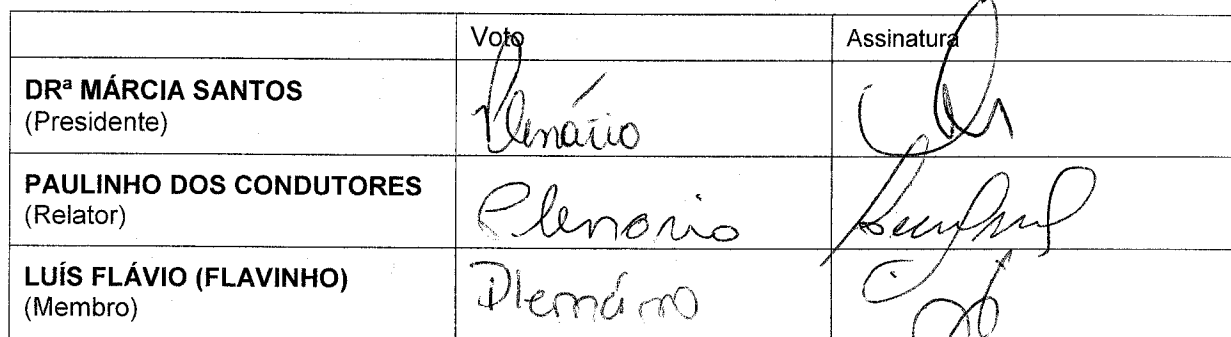 Voto Assinatura
DRª MÁRCIA SANTOS
(Presidente)
Plenário
PAULINHO DOS CONDUTORES
(Relator)
Plenario
LUÍS FLÁVIO (FLAVINHO)
(Membro)
Plenário